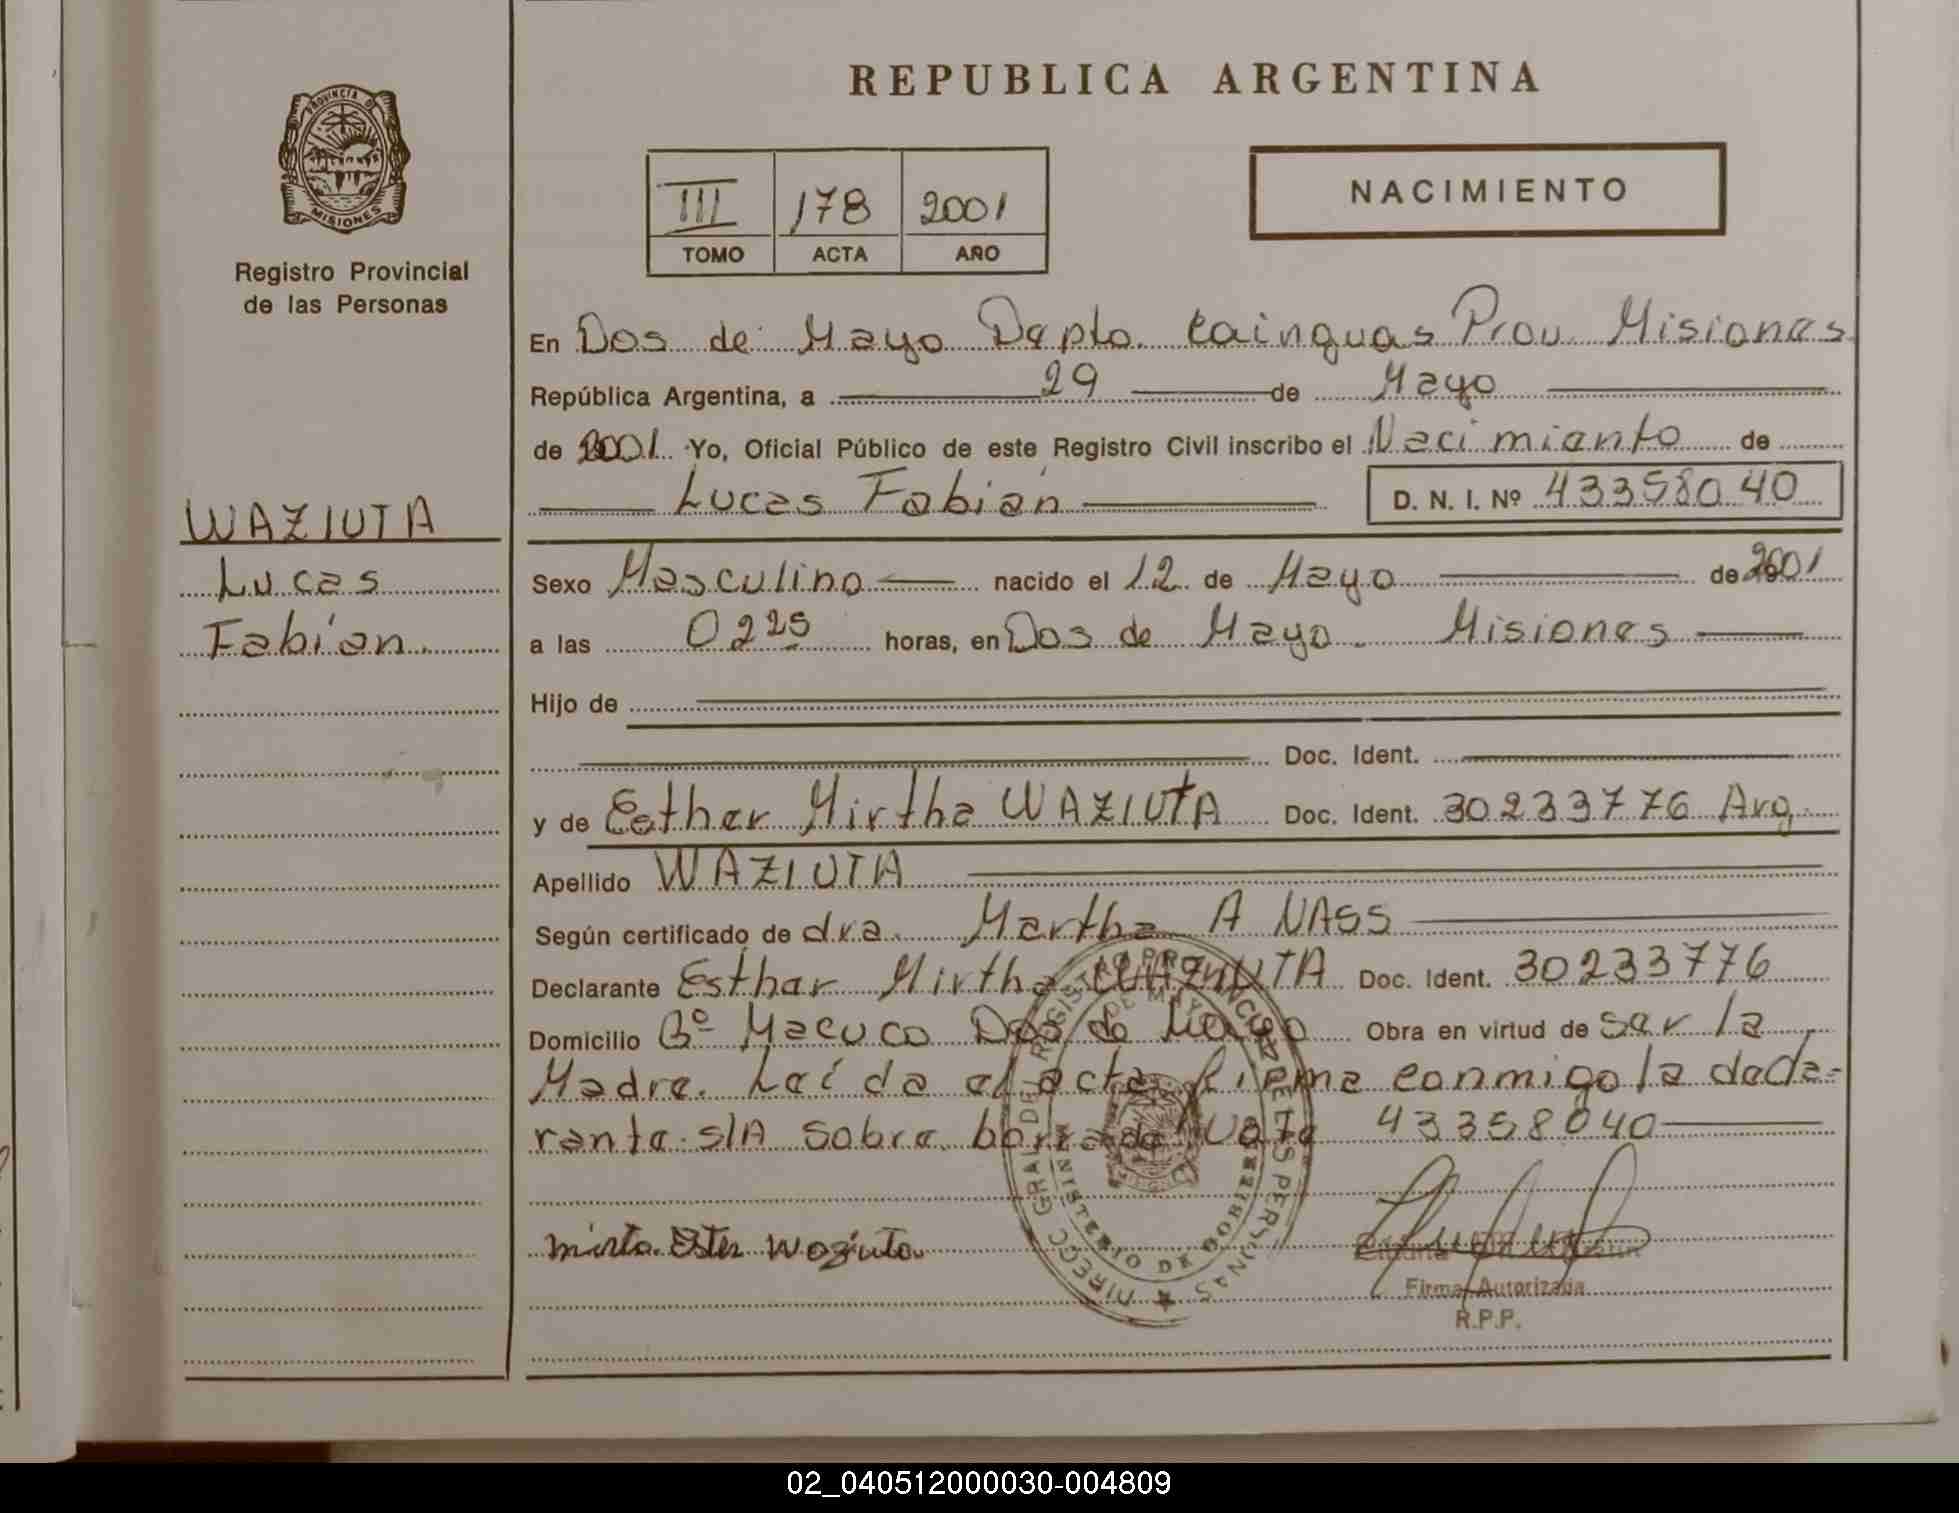 REPUBLICA ARGENTINA
PROVINCIA D
MISIONES
Registro Provincial
de las Personas
III 178 2001
TOMO ACTA AÑO
NACIMIENTO
En Dos de Mayo Depto. Cainguas Prov. Misiones
República Argentina, a 29 de Mayo
de 2001 Yo, Oficial Público de este Registro Civil inscribo el Nacimiento de
Lucas Fabián D. N. I. Nº 43358040
WAZIUTA
Lucas
Fabián.
Sexo Masculino nacido el 12 de Mayo de 2001
a las 0225 horas, en Dos de Mayo. Misiones
Hijo de
Doc. Ident.
y de Esther Mirtha WAZIUTA Doc. Ident. 30233776 Arg.
Apellido WAZIUTA
Según certificado de dra. Martha A NASS
Declarante Esther Mirtha WAZIUTA Doc. Ident. 30233776
Domicilio Bº Macuco Dos de Mayo Obra en virtud de ser la
Madre. Leída el acta, firma conmigo la decla=
rante. S/A sobre borrado Vale 43358040
mirta Ester Waziuta
DIRECC GRAL DEL REGISTRO PROVINCIAL DE LAS PERSONAS
DE MAYO
MINISTERIO DE GOBIERNO
Firma Autorizada
R.P.P.
02_040512000030-004809